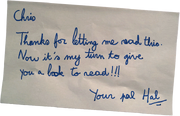 Chris
Thanks for letting me read this.
Now it's my turn to give
you a book to read!!!
Your pal Hal